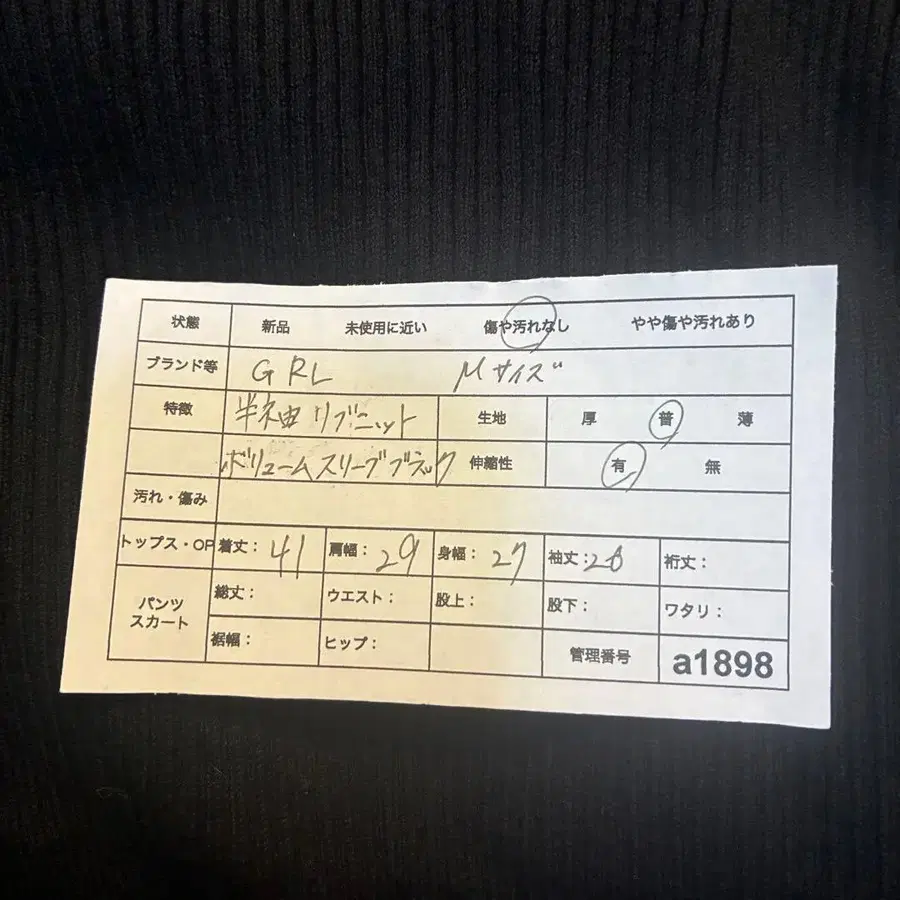 状態 新品 未使用に近い 傷や汚れなし やや傷や汚れあり
ブランド等 GRL Mサイズ
特徴 半袖 リブニット 生地 厚 普 薄
ボリュームスリーブ ブラック 伸縮性 有 無
汚れ・傷み
トップス・OP 着丈: 41 肩幅: 29 身幅: 27 袖丈: 裄丈:
パンツ スカート 総丈: ウエスト: 股上: 股下: ワタリ:
裾幅: ヒップ: 管理番号 a1898